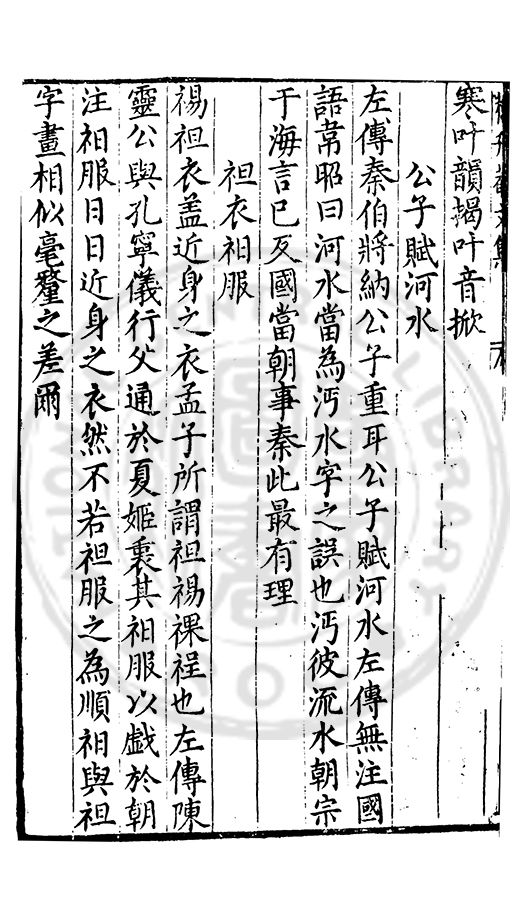 寒叶韻揭叶音掀
公子賦河水
左傳秦伯將納公子重耳公子賦河水左傳無注國
語韋昭曰河水當為沔水字之誤也沔彼流水朝宗
于海言已反國當朝事秦此最有理
袒衣衵服
裼袒衣蓋近身之衣孟子所謂袒裼裸裎也左傳陳
靈公與孔寧儀行父通於夏姬裹其衵服以戱於朝
注衵服日日近身之衣然不若袒服之為順衵與袒
字畫相似毫釐之差爾